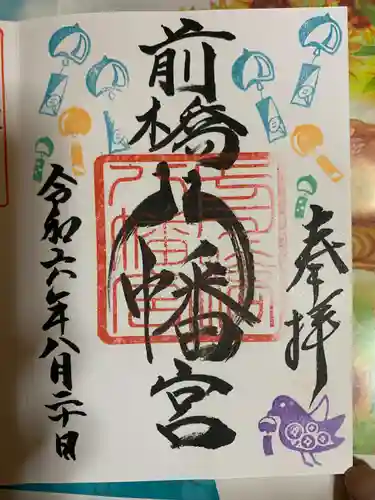 奉拝
前橋八幡宮
令和六年八月二十日